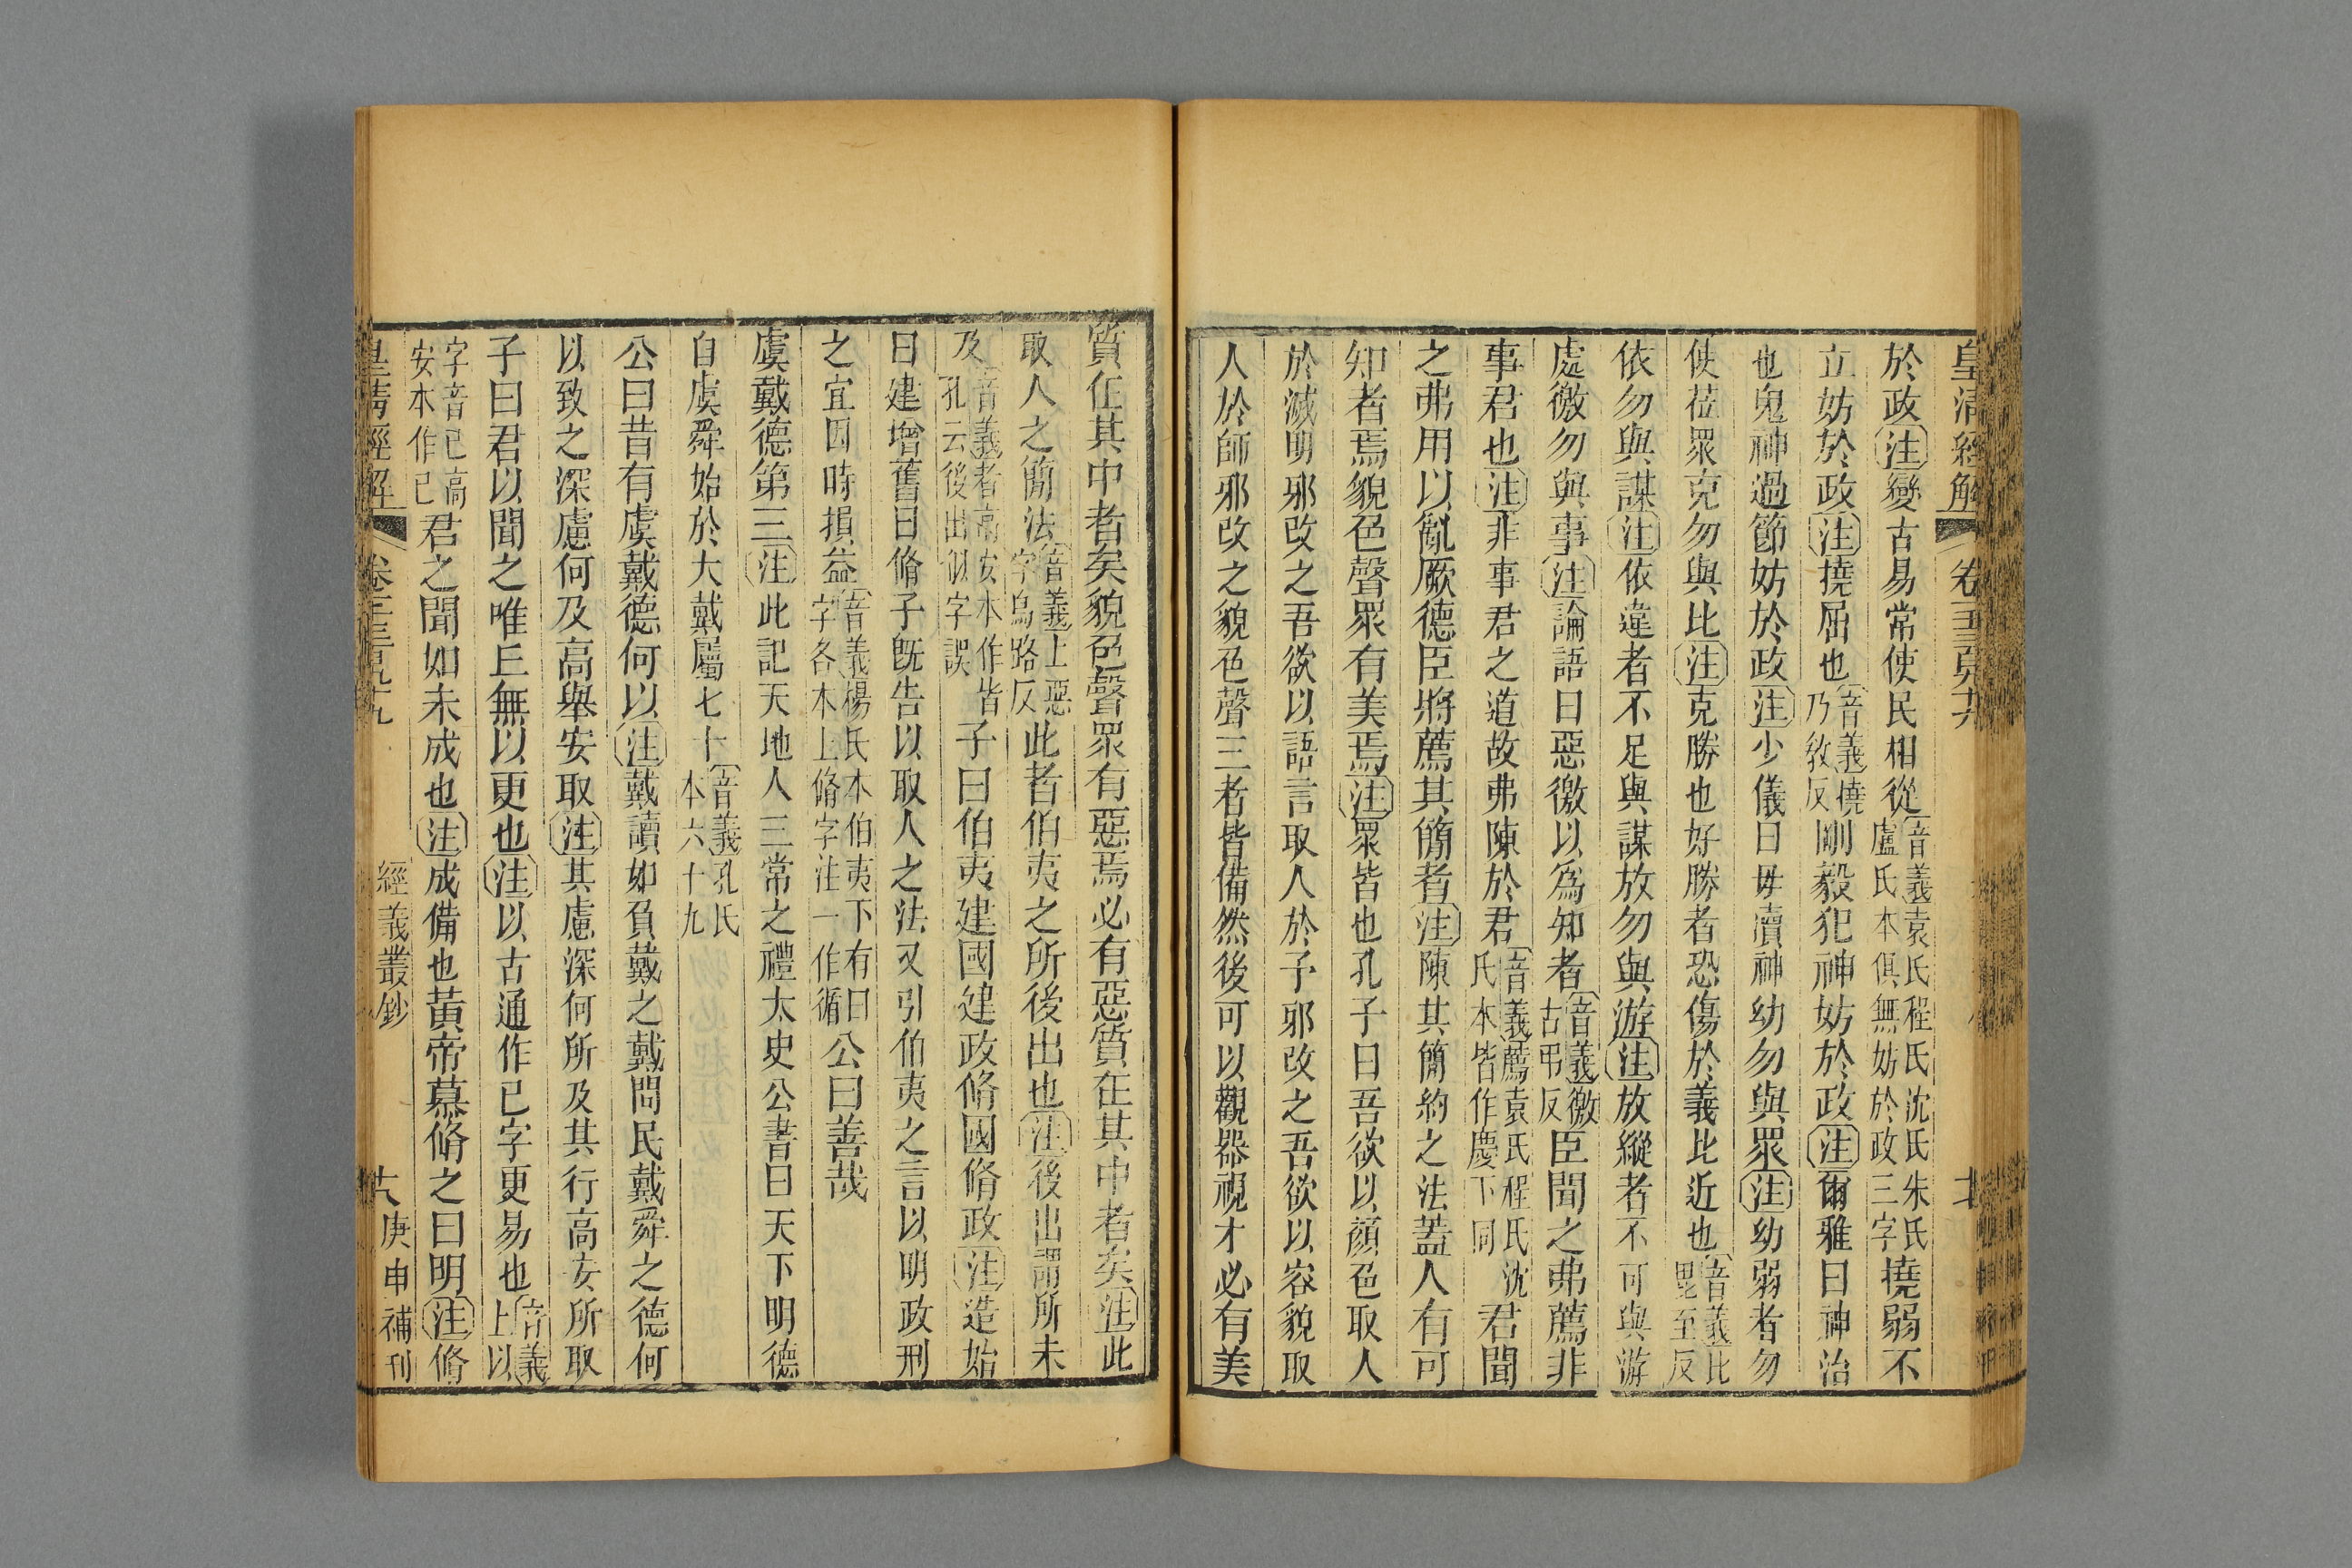 皇清經解
於政注變古易常使民相從音義袁氏程氏沈氏朱氏盧氏本俱無妨於政三字撓弱不
立妨於政注撓屈也音義撓乃敎反剛毅犯神妨於政注爾雅曰神治
也鬼神過節妨於政注少儀曰毋瀆神幼勿與眾注幼弱者勿
使莅眾克勿與比注克勝也好勝者恐傷於義比近也音義比毗至反
依勿與謀注依違者不足與謀放勿與游注放縱者不可與游
處徼勿與事注論語曰惡徼以爲知者音義徼古弔反臣聞之弗薦非
事君也注非事君之道故弗陳於君音義薦袁氏程氏沈氏本皆作慶下同君聞
之弗用以亂厥德臣將薦其簡者注陳其簡約之法蓋人有可
知者焉貌色聲眾有美焉注眾皆也孔子曰吾欲以顏色取人
於滅明邪改之吾欲以語言取人於予邪改之吾欲以容貌取
人於師邪改之貌色聲三者皆備然後可以觀器視才必有美
質在其中者矣貌色聲眾有惡焉必有惡質在其中者矣注此
取人之簡法音義上惡字烏路反此者伯夷之所後出也注後出謂所未
及音義者高安本作皆孔云後出似字誤子曰伯夷建國建政脩國脩政注造始
曰建增舊曰脩子旣告以取人之法又引伯夷之言以明政刑
之宜因時損益音義楊氏本伯夷下有曰字各本上脩字注一作循公曰善哉
虞戴德第三注此記天地人三常之禮太史公書曰天下明德
自虞舜始於大戴屬七十音義孔氏本六十九
公曰昔有虞戴德何以注戴讀如負戴之戴問民戴舜之德何
以致之深慮何及高舉安取注其慮深何所及其行高安所取
子曰君以聞之唯丘無以更也注以古通作已字更易也音義上以
字音已高安本作已君之聞如未成也注成備也黃帝慕脩之曰明注脩
皇清經解
經義叢鈔
庚申補刊